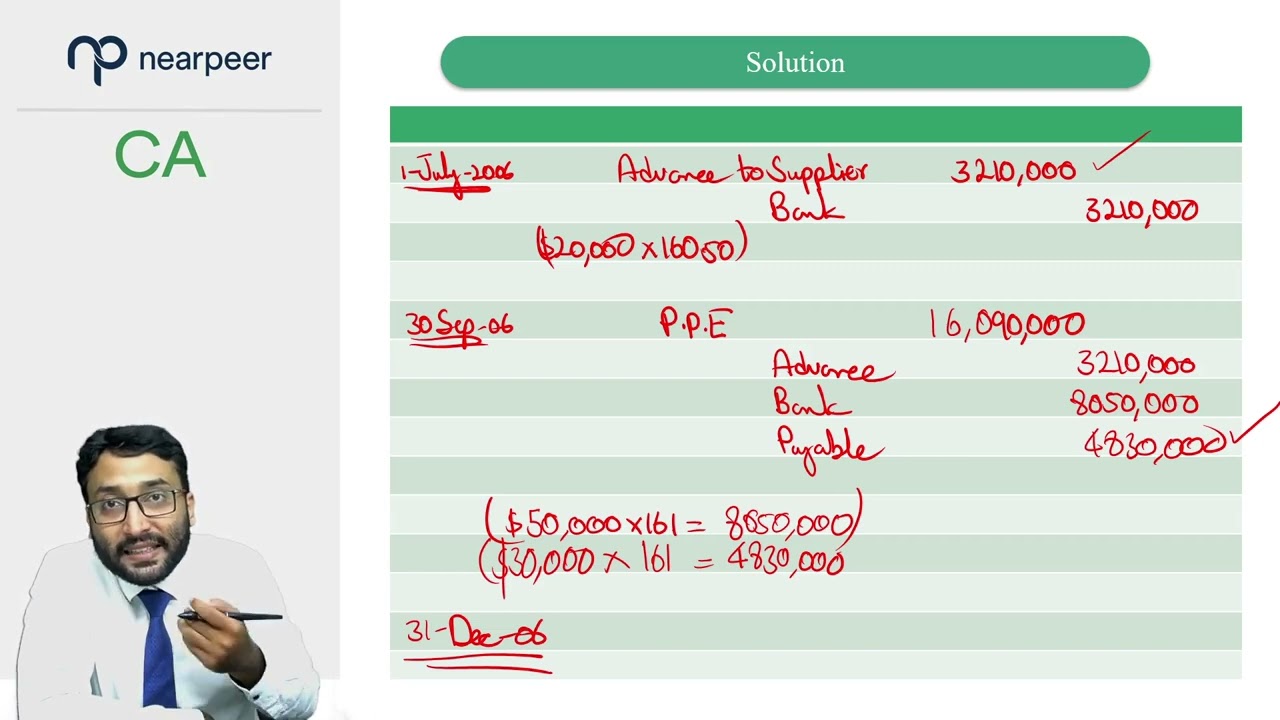 nearpeer
CA
Solution
1-July-2006 Advance to Supplier 3210,000
Bank 3210,000
($20,000 × 160.50)
30 Sep-06 P.P.E 16,090,000
Advance 3210,000
Bank 8050,000
Payable 4830,000
($50,000 × 161 = 8050,000)
($30,000 × 161 = 4830,000
31-Dec-06